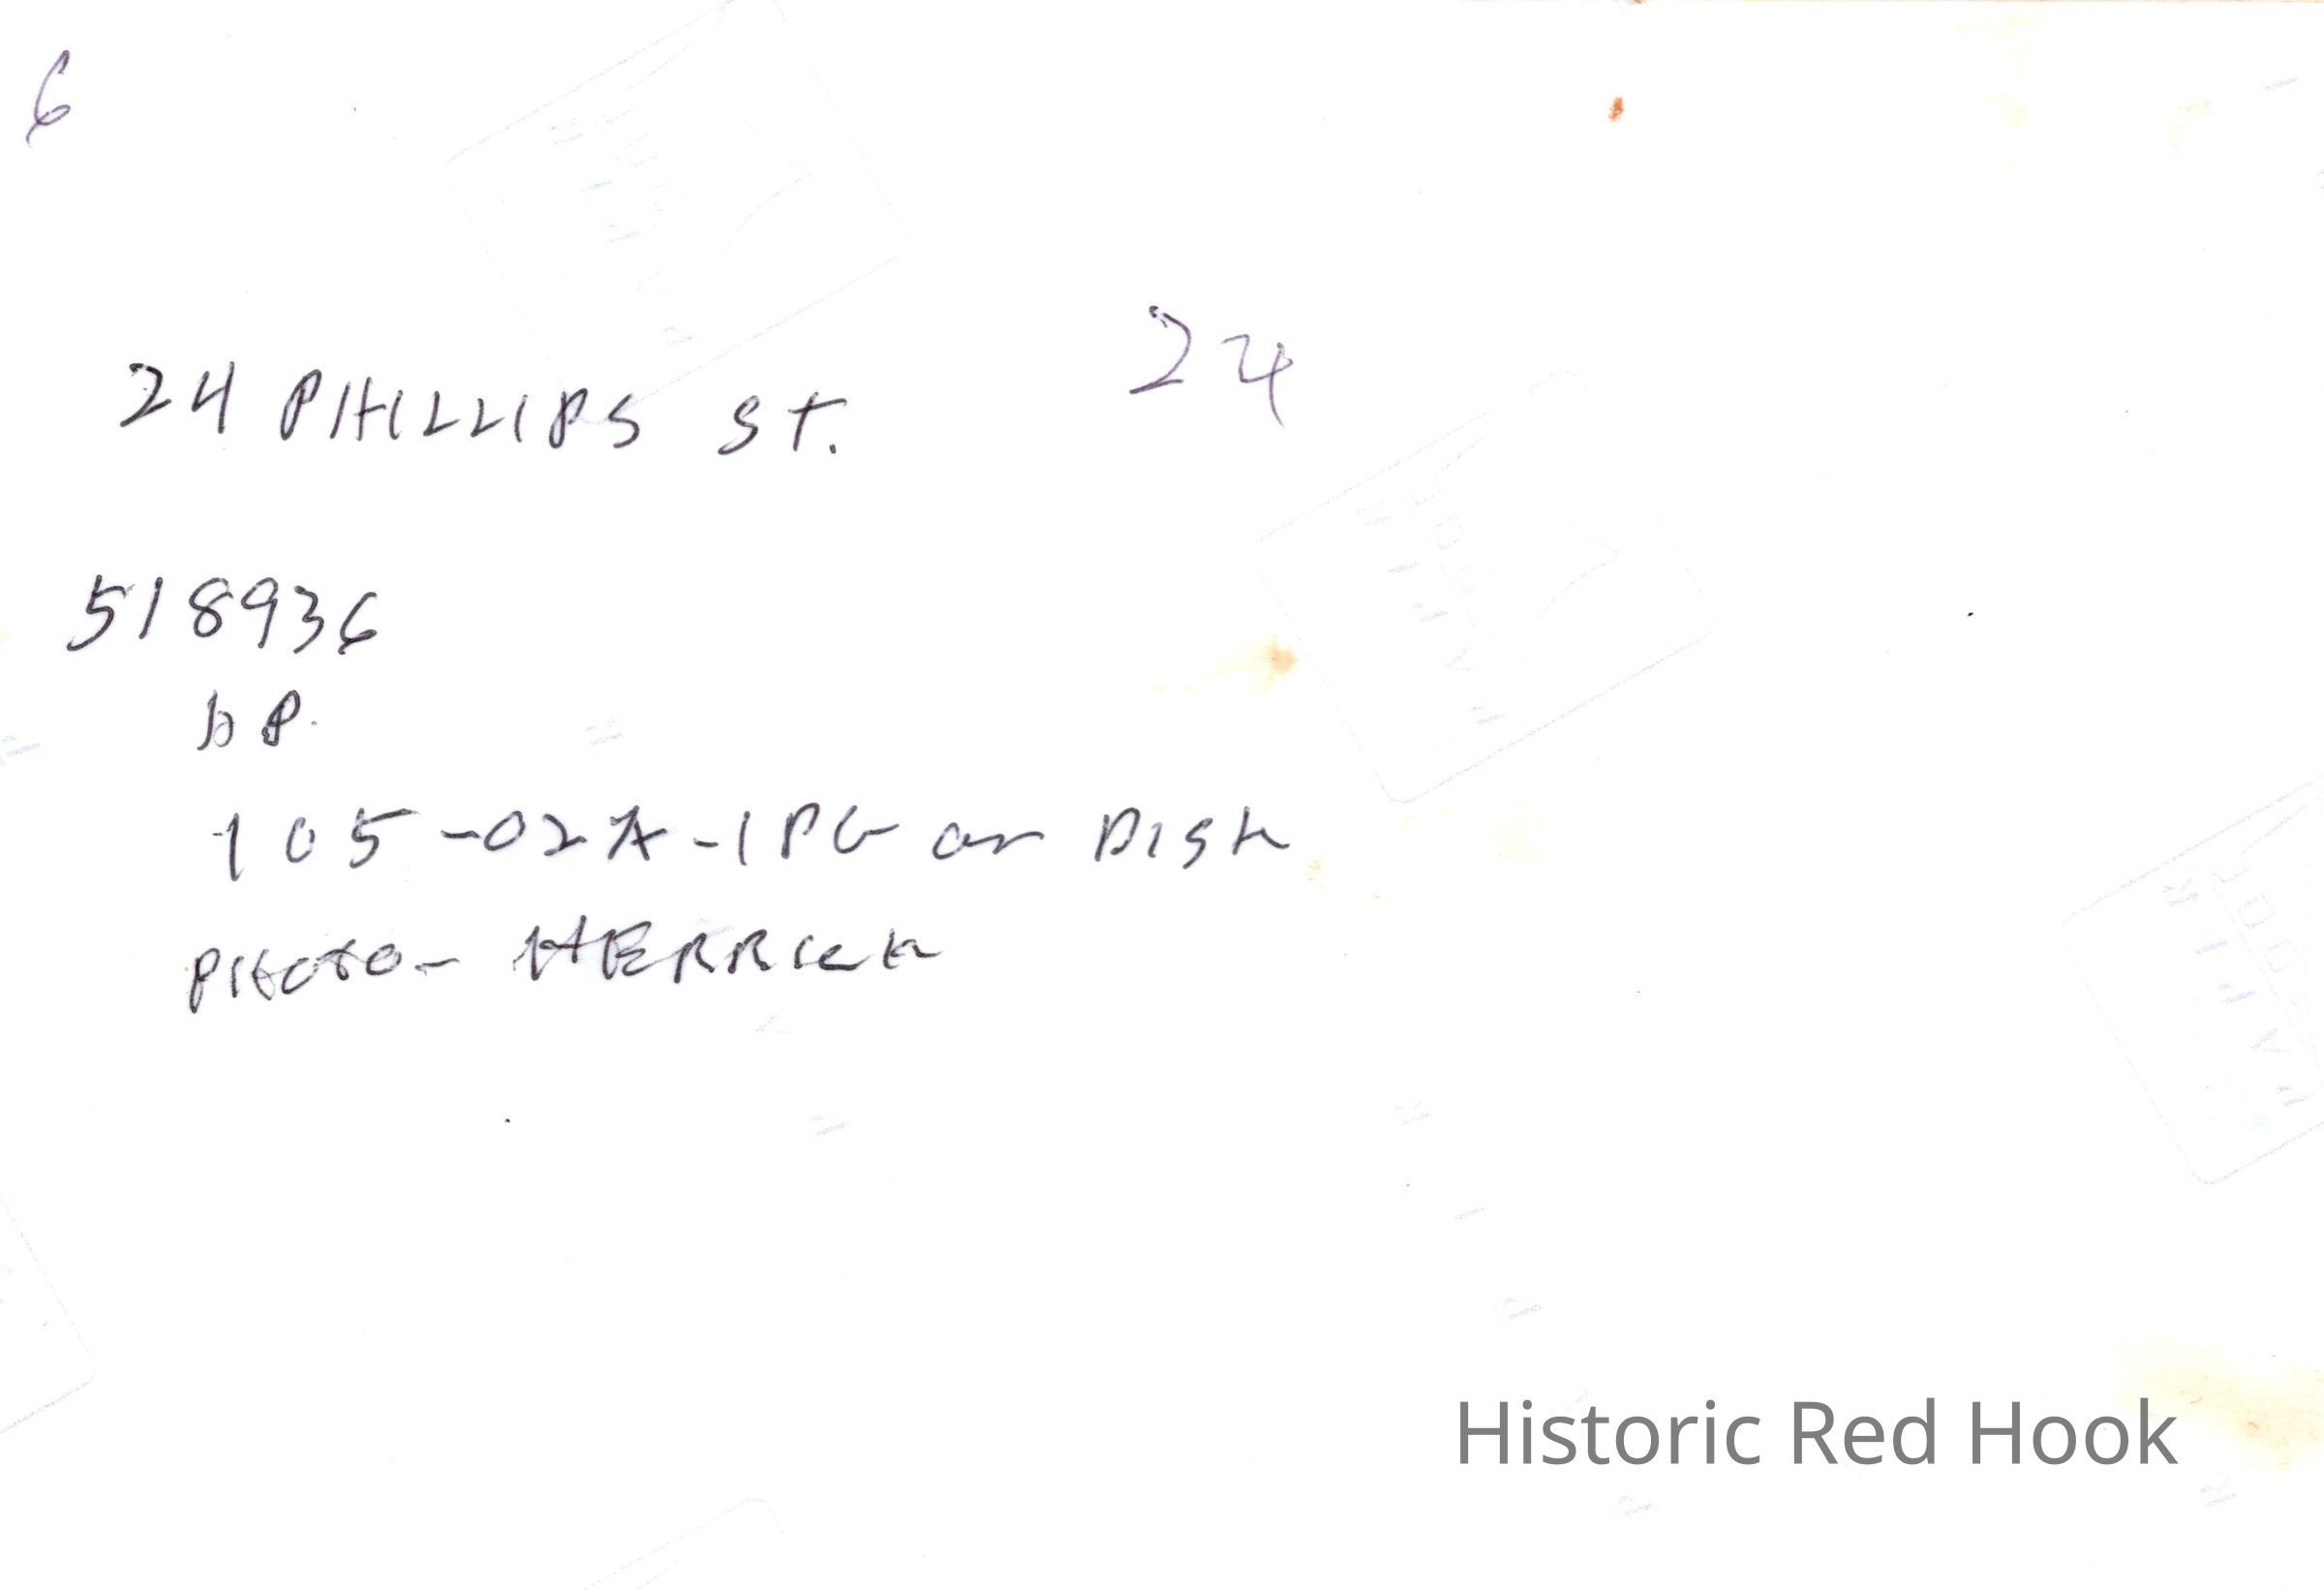 6
24
24 PHILLIPS ST.
518936
DP.
105-02A-1PG on DISK
PHOTO- HERRICK
Historic Red Hook